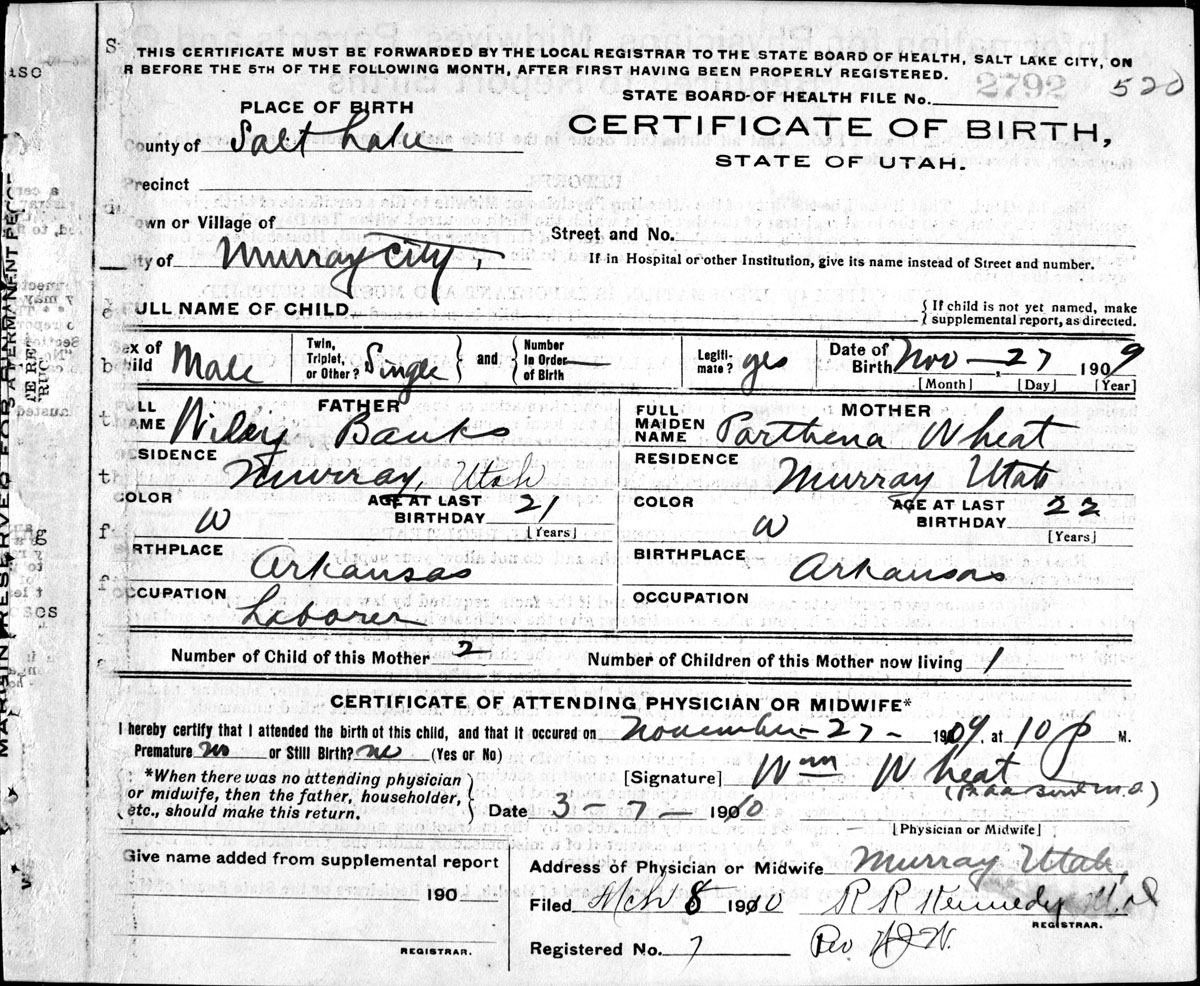 THIS CERTIFICATE MUST BE FORWARDED BY THE LOCAL REGISTRAR TO THE STATE BOARD OF HEALTH, SALT LAKE CITY, ON
R BEFORE THE 5TH OF THE FOLLOWING MONTH, AFTER FIRST HAVING BEEN PROPERLY REGISTERED.
2792 520
STATE BOARD OF HEALTH FILE No.
PLACE OF BIRTH
CERTIFICATE OF BIRTH,
STATE OF UTAH.
County of Salt Lake
Precinct
Town or Village of
Street and No.
City of Murray City,
If in Hospital or other Institution, give its name instead of Street and number.
FULL NAME OF CHILD
If child is not yet named, make supplemental report, as directed.
Sex of Child Male Twin, Triplet, or Other? Single and Number in Order of Birth Legiti-mate? yes Date of Birth Nov - 27 1909
[Month] [Day] [Year]
FATHER
FULL NAME Wiley Banks
RESIDENCE Murray, Utah
COLOR W AGE AT LAST BIRTHDAY 21
[Years]
BIRTHPLACE Arkansas
OCCUPATION Laborer
MOTHER
FULL MAIDEN NAME Parthena Wheat
RESIDENCE Murray Utah
COLOR W AGE AT LAST BIRTHDAY 22
[Years]
BIRTHPLACE Arkansas
OCCUPATION
Number of Child of this Mother 2 Number of Children of this Mother now living 1
CERTIFICATE OF ATTENDING PHYSICIAN OR MIDWIFE*
I hereby certify that I attended the birth of this child, and that it occured on November - 27 - 1909, at 10 P M.
Premature no or Still Birth? no (Yes or No)
*When there was no attending physician or midwife, then the father, householder, etc., should make this return.
[Signature] Wm Wheat
Date 3 - 7 - 1910
[Physician or Midwife]
Give name added from supplemental report
190
REGISTRAR.
Address of Physician or Midwife Murray Utah,
Filed Mch 8 1910 R R Kennedy M.D
REGISTRAR.
Registered No. 7